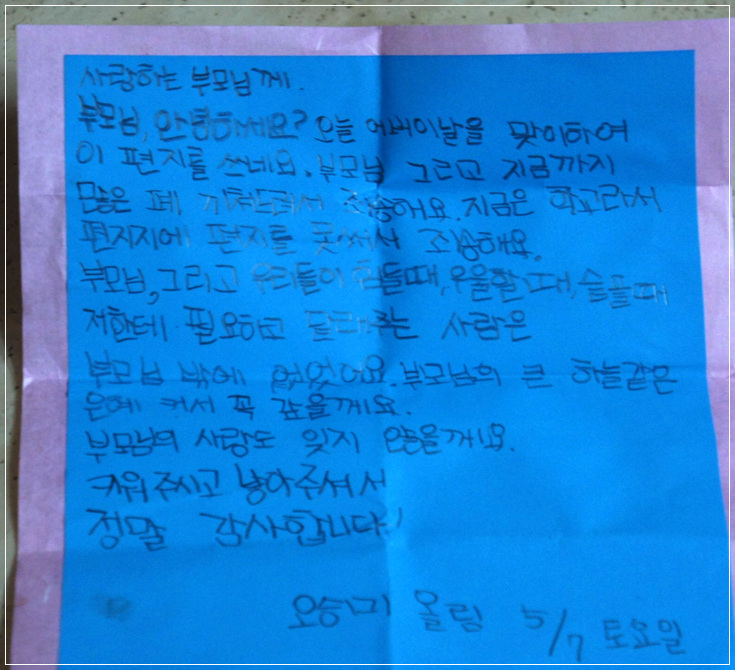 사랑하는 부모님께.
부모님, 안녕하세요? 오늘 어버이날을 맞이하여
이 편지를 쓰네요. 부모님 그리고 지금까지
많은 폐 끼쳐드려서 죄송해요. 지금은 학교라서
편지지에 편지를 못써서 죄송해요.
부모님, 그리고 우리들이 힘들때, 우울할때, 슬플때
저한테 필요하고 달래주는 사람은
부모님 밖에 없었어요. 부모님의 큰 하늘같은
은혜 커서 꼭 갚을께요.
부모님의 사랑도 잊지 않을께요.
키워 주시고 낳아주셔서
정말 감사합니다!
올림 5/7 토요일